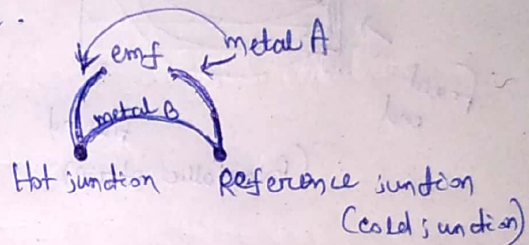 emf
metal A
metal B
Hot junction
Reference junction
(cold junction)